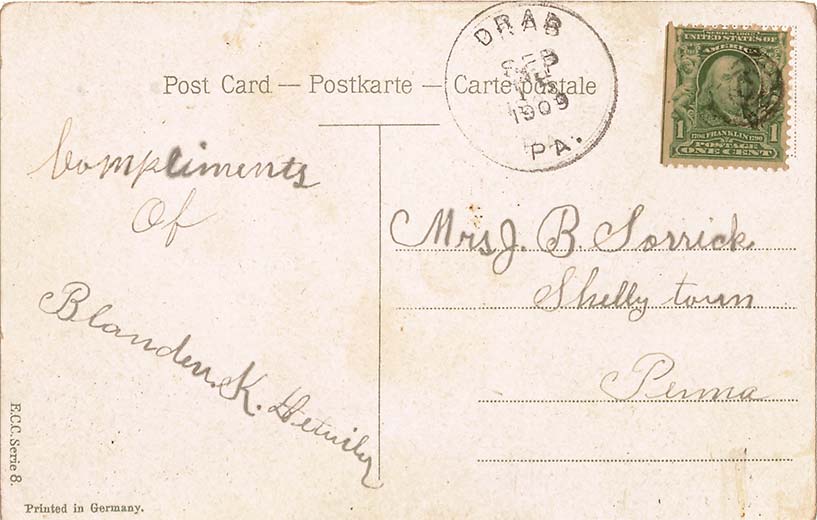 Post Card — Postkarte — Carte postale
DRAB
1909
PA.
SERIES 1902
UNITED STATES OF
AMERICA
1 1706 FRANKLIN 1790 1
POSTAGE
ONE CENT
Compliments
Of
Blanden. K. Detwiler
Mrs J. B. Sorrick
Shelly town
Penna
E.C.C. Serie 8.
Printed in Germany.